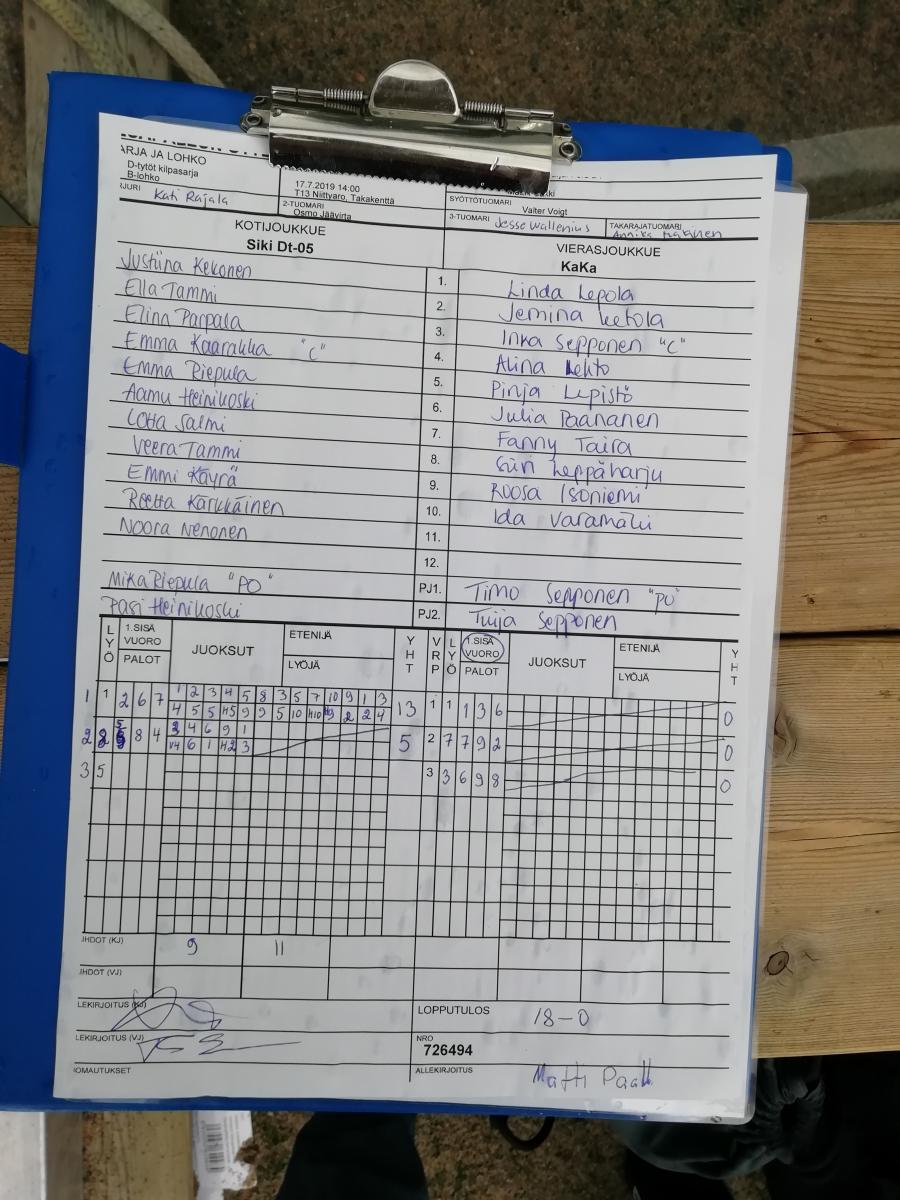 ARJA JA LOHKO
D-tytöt kilpasarja
B-lohko
17.7.2019 14:00
T13 Niittyaro, Takakenttä
SYÖTTÖTUOMARI
Valter Voigt
JURI Kati Rajala
2-TUOMARI
Osmo Jäävirta
3-TUOMARI Jesse Wallenius
TAKARAJATUOMARI
Annika
KOTIJOUKKUE
Siki Dt-05
VIERASJOUKKUE
KaKa
Justiina Kekonen 1. Linda Lepola
Ella Tammi 2. Jemina Ketola
Elina Parpala 3. Inka Sepponen "C"
Emma Kaarakka "C" 4. Alina Lehto
Emma Riepula 5. Pinja Lepistö
Aamu Heinikoski 6. Julia Paananen
Lotta Salmi 7. Fanny Taira
Veera Tammi 8. Siiri Leppäharju
Emmi Käyrä 9. Roosa Isoniemi
Reetta Kärkkäinen 10. Ida Varamäki
Noora Nenonen 11.
12.
Mika Riepula "PO" PJ1. Timo Sepponen "PO"
Pasi Heinikoski PJ2. Tuija Sepponen
LYÖ 1.SISÄ VUORO PALOT JUOKSUT ETENIJÄ LYÖJÄ YHT VRP LYÖ 1.SISÄ VUORO PALOT JUOKSUT ETENIJÄ LYÖJÄ YHT
1 1 2 6 7 1 2 3 4 5 8 3 5 7 10 9 1 3 13 1 1 1 3 6 0
8 4 5 2 7 7 9 2 0
3 5 3 3 6 9 8 0
HDOT (KJ) 9 11
HDOT (VJ)
LEKIRJOITUS (KJ)
LOPPUTULOS 18-0
LEKIRJOITUS (VJ)
NRO
726494
OMAUTUKSET
ALLEKIRJOITUS Matti